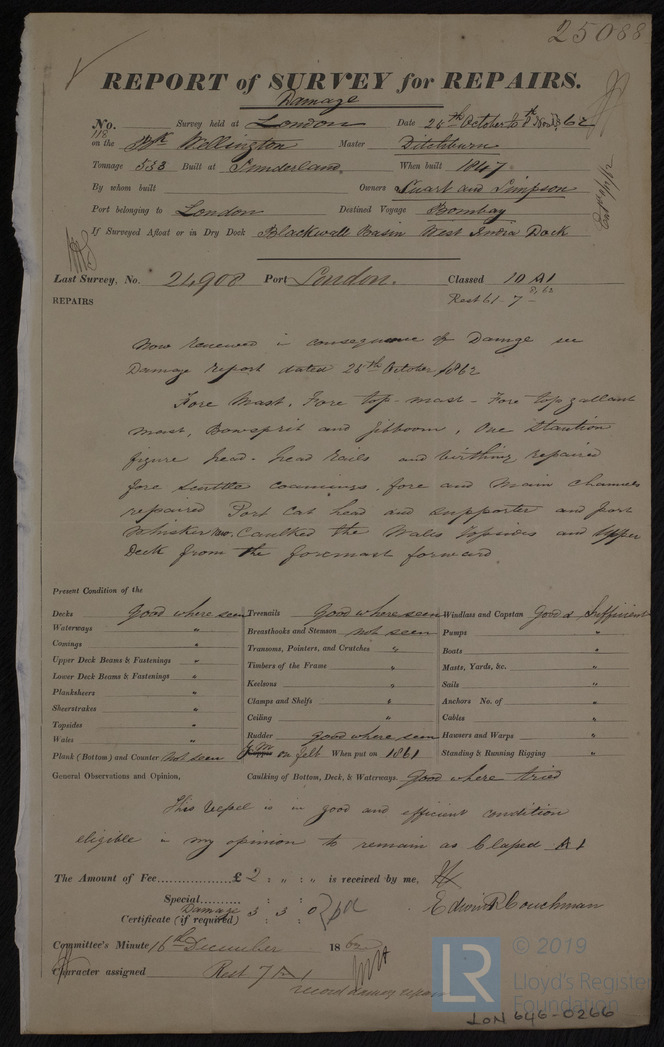 25088
REPORT of SURVEY for REPAIRS.
Damage
No. 118 Survey held at London Date 25th October 10th Novr 1862
on the Bk Wellington Master Ditchburn
Tonnage 533 Built at Sunderland When built 1847
By whom built Owners Stuart and Simpson
Port belonging to London Destined Voyage Bombay
If Surveyed Afloat or in Dry Dock Blackwall Basin West India Dock
Last Survey, No. 24908 Port London. Classed 10 A1
Rest 61-7- 8,62
REPAIRS
Now renewed in consequence of Damage see
Damage report dated 25th October 1862
Fore Mast, Fore top-mast - Fore topgallant
mast, Bowsprit and jibboom, One Stantion
figure head - head rails and birthing repaired
fore scuttle coamings, fore and main channels
repaired Port Cat head and supporter and port
Whisker new. Caulked the Wales topsides and upper
Deck from the foremast forward
Present Condition of the
Decks Good where seen Treenails Good where seen Windlass and Capstan Good & Sufficient
Waterways " Breasthooks and Stemson not seen Pumps "
Comings " Transoms, Pointers, and Crutches " Boats "
Upper Deck Beams & Fastenings " Timbers of the Frame " Masts, Yards, &c. "
Lower Deck Beams & Fastenings " Keelsons " Sails "
Planksheers " Clamps and Shelfs " Anchors No. of "
Sheerstrakes " Ceiling " Cables "
Topsides " Rudder Good where seen Hawsers and Warps "
Wales " Y.M. on felt When put on 1861 Standing & Running Rigging "
Plank (Bottom) and Counter Not seen
General Observations and Opinion, Caulking of Bottom, Deck, & Waterways Good where tried
This Vessel is in good and efficient condition
eligible in my opinion to remain as Classed A1
The Amount of Fee £ 2 : " : " is received by me,
Special
Damage 3 : 3 : 0 pd
Certificate (if required)
Edwin R Couchman
Committee's Minute 16th December 1862
Character assigned Rest 7 A1
record damage repairs
LR © 2019
Lloyd's Register
Foundation
LON 646-0266